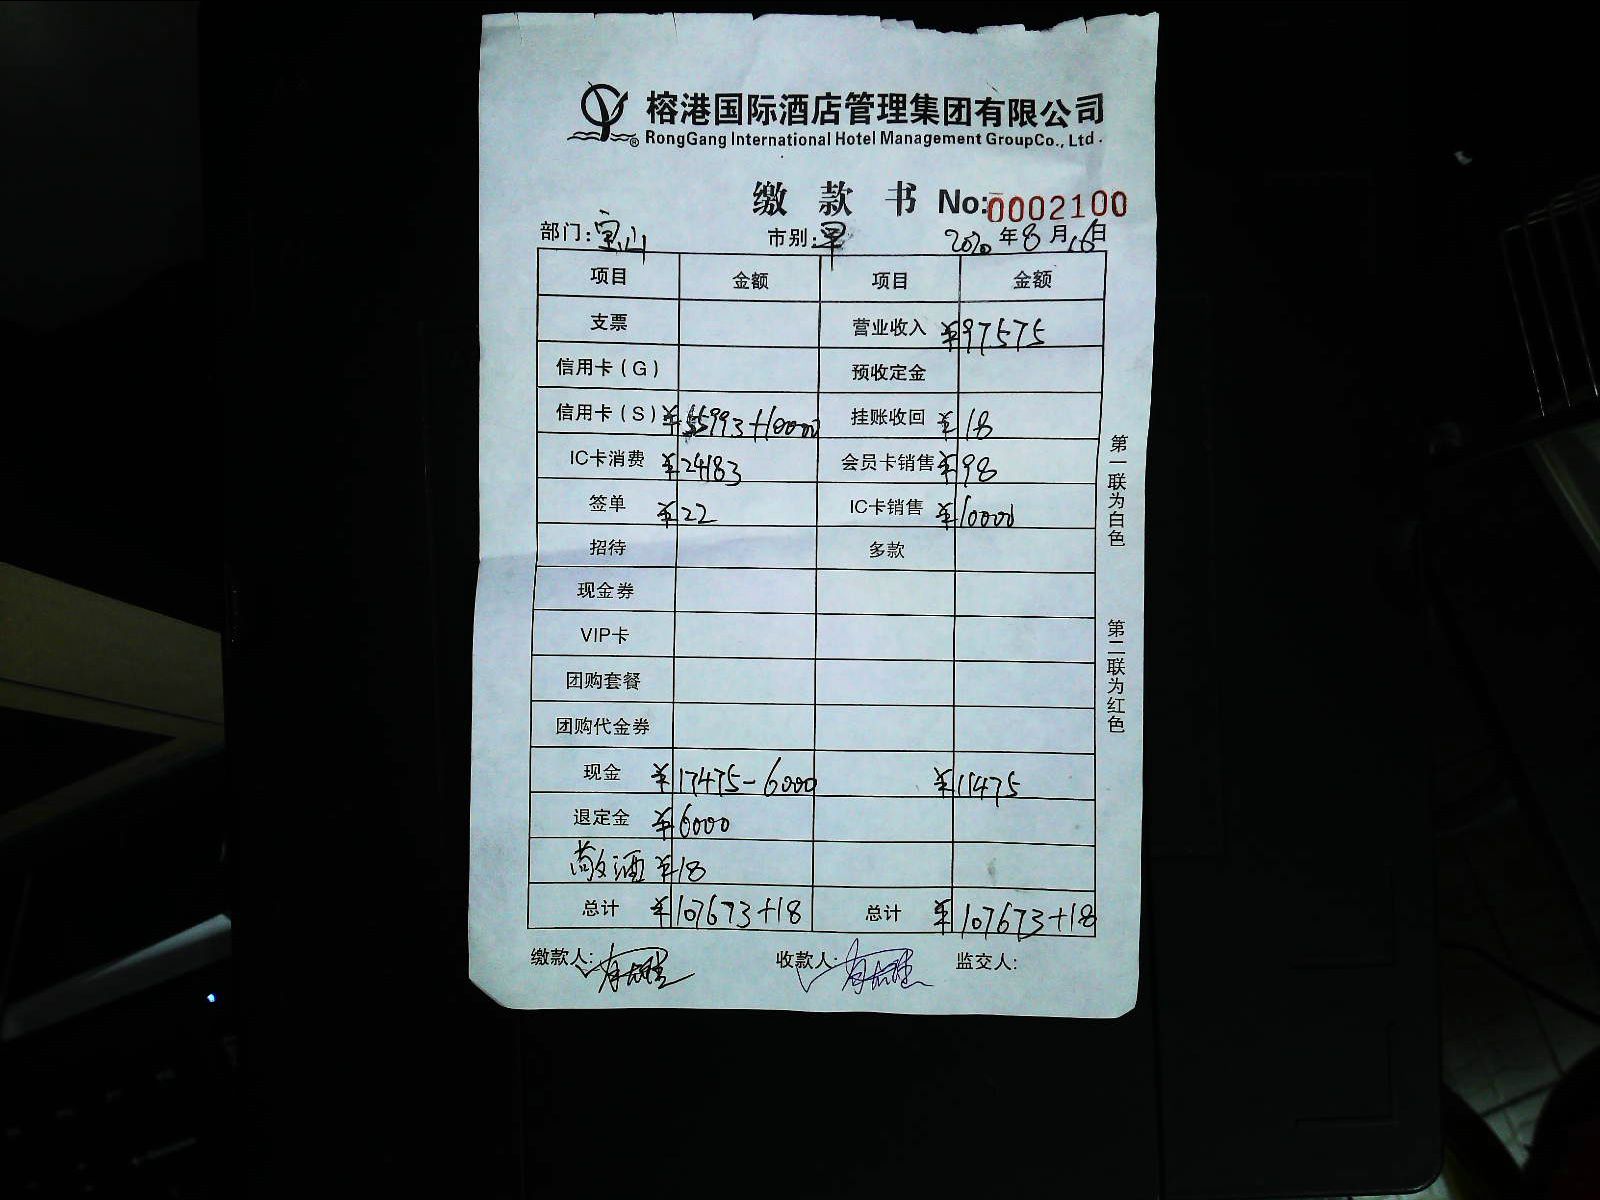 榕港国际酒店管理集团有限公司
® RongGang International Hotel Management GroupCo., Ltd.
缴 款 书 No:0002100
部门:宝山 市别:早 2020年8月16日
项目 金额 项目 金额
支票 营业收入 ¥97575
信用卡(G) 预收定金
信用卡(S) ¥55993+10000 挂账收回 ¥18
IC卡消费 ¥24183 会员卡销售 ¥98
签单 ¥22 IC卡销售 ¥10000
招待 多款
现金券
VIP卡
团购套餐
团购代金券
现金 ¥17475-6000 ¥11475
退定金 ¥6000
酒 ¥18
总计 ¥107673+18 总计 ¥107673+18
缴款人: 收款人: 监交人:
第一联为白色
第二联为红色